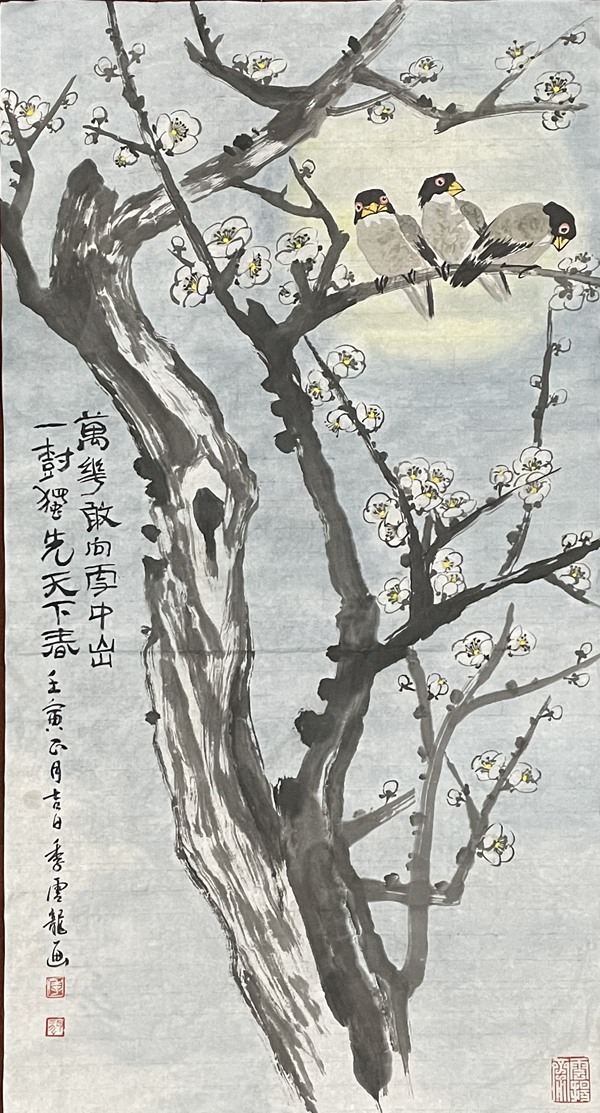 萬花敢向雪中出
一樹獨先天下春
壬寅正月吉日季雲龍画